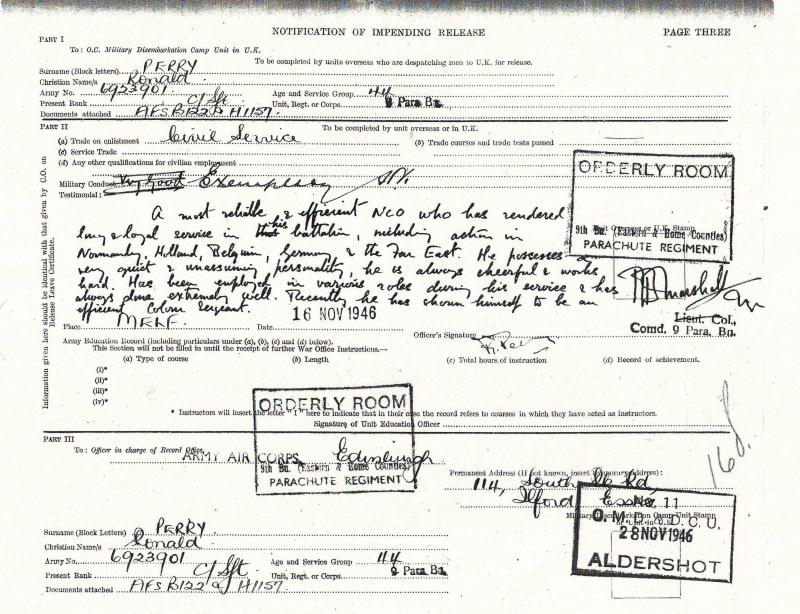 NOTIFICATION OF IMPENDING RELEASE
PAGE THREE
PART I
To: O.C. Military Disembarkation Camp Unit in U.K.
To be completed by units overseas who are despatching men to U.K. for release.
Surname (Block letters) PERRY
Christian Name/s Ronald
Army No. 6923901 Age and Service Group 44
Present Rank C/Sgt Unit, Regt. or Corps 9 Para Bn.
Documents attached AFs B122 & H1157
PART II
To be completed by unit overseas or in U.K.
(a) Trade on enlistment Civil Service (b) Trade courses and trade tests passed
(c) Service Trade
(d) Any other qualifications for civilian employment
Military Conduct Very Good Exemplary
Testimonial:
A most reliable & efficient NCO who has rendered
long & loyal service in this his battalion, including action in
Normandy, Holland, Belgium, Germany & the Far East. He possesses a
very quiet & unassuming personality, he is always cheerful & works
hard. Has been employed in various roles during his service & has
always done extremely well. Recently he has shown himself to be an
efficient Colour Sergeant.
Place MELF Date 16 NOV 1946
Officer's Signature
Lieut. Col.,
Comd. 9 Para. Bn.
ORDERLY ROOM
9th Bn. (Eastern & Home Counties)
PARACHUTE REGIMENT
Information given here should be identical with that given by C.O. on
Release Leave Certificate.
Army Education Record (including particulars under (a), (b), (c) and (d) below).
This Section will not be filled in until the receipt of further War Office Instructions.—
(a) Type of course (b) Length (c) Total hours of instruction (d) Record of achievement.
(i)*
(ii)*
(iii)*
(iv)*
* Instructors will insert the letter "I" here to indicate that in their case the record refers to courses in which they have acted as instructors.
Signature of Unit Education Officer
ORDERLY ROOM
9th Bn. (Eastern & Home Counties)
PARACHUTE REGIMENT
PART III
To: Officer in charge of Record Office,
ARMY AIR CORPS, Edinburgh
Permanent Address (if not known, insert temporary address):
114, South Rd,
Ilford Essex
Military Disembarkation Camp Unit Stamp
No. 11
28 NOV 1946
ALDERSHOT
Surname (Block Letters) PERRY
Christian Name/s Ronald
Army No. 6923901 Age and Service Group 44
Present Rank C/Sgt Unit, Regt. or Corps 9 Para Bn.
Documents attached AFs B122 & H1157